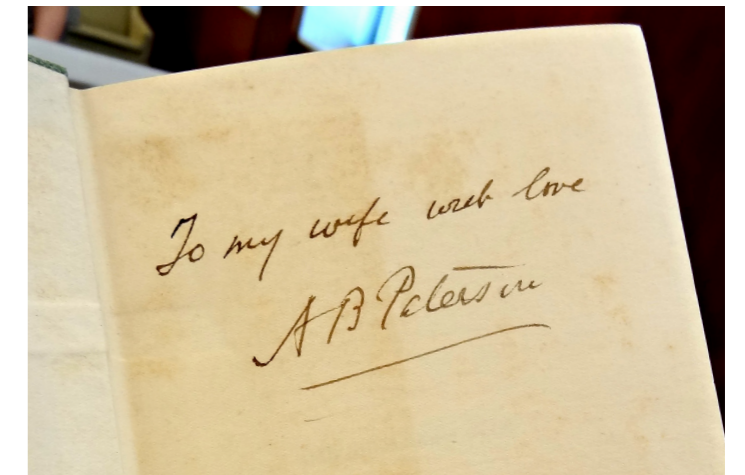 To my wife with love
A B Paterson